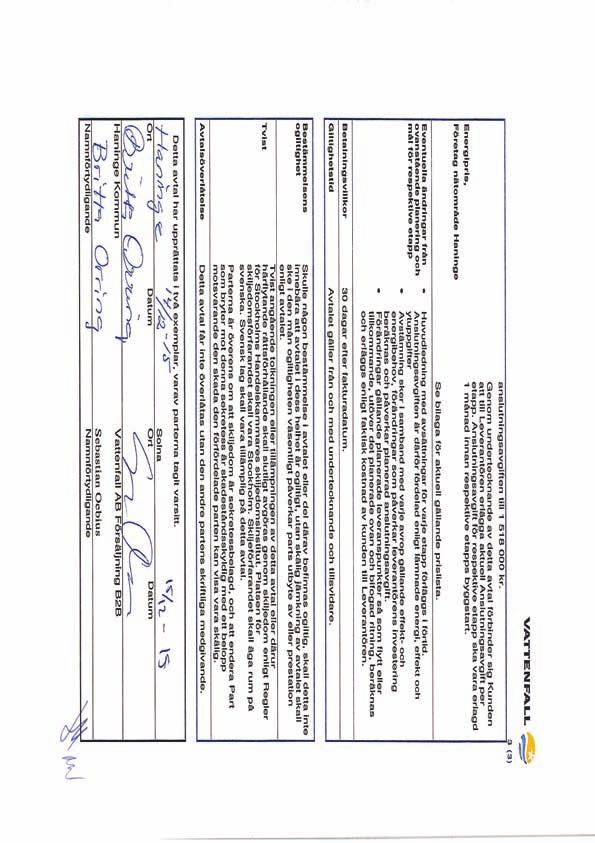 VATTENFALL
3 (3)
anslutningsavgiften till 1 518 000 kr.
Genom undertecknande av detta avtal förbinder sig Kunden
att till Leverantören erlägga aktuell Anslutningsavgift per
etapp. Anslutningsavgift för respektive etapp ska vara erlagd
1 månad innan respektive etapps byggstart.
Energipris,
Företag nätområde Haninge
Se bilaga för aktuell gällande prislista.
Eventuella ändringar från
ovanstående planering och
mål för respektive etapp
• Huvudledning med avsättningar för varje etapp förläggs i förtid.
Anslutningsavgiften är därför fördelad enligt lämnade energi, effekt och
yuppgifter
• Avstämning sker i samband med varje avrop gällande effekt- och
energibehov, förändringar som påverkar leverantörens investering
beräknas och påverkar planerad anslutningsavgift.
• Förändringar gällande planerade leveranspunkter så som flytt eller
tillkommande, utöver det planerade ovan och bifogad ritning, beräknas
och erläggs enligt faktisk kostnad av kunden till Leverantören.
Betalningsvillkor
30 dagar efter fakturadatum.
Giltighetstid
Avtalet gäller från och med undertecknande och tillsvidare.
Bestämmelsens
ogiltighet
Skulle någon bestämmelse i avtalet eller del därav befinnas ogiltig, skall detta inte
innebära att avtalet i dess helhet är ogiltigt, utan skälig jämkning av avtalet skall
ske i den mån ogiltigheten väsentligt påverkar parts utbyte av eller prestation
enligt avtalet.
Tvist
Tvist angående tolkningen eller tillämpningen av detta avtal eller därur
härflytande rättsförhållande skall slutligt avgöras genom skiljedom enligt Regler
för Stockholms Handelskammares skiljedomsinstitut. Platsen för
skiljedomsförfarandet skall vara Stockholm. Skiljeförfarandet skall äga rum på
svenska. Svensk lag skall vara tillämplig på detta avtal.
Parterna är överens om att skiljedom är sekretessbelagd, och att endera Part
som bryter mot denna sekretess är skadeståndsskyldig med ett belopp
motsvarande den skada den förfördelade parten kan visa vara skälig.
Avtalsöverlåtelse
Detta avtal får inte överlåtas utan den andre partens skriftliga medgivande.
Detta avtal har upprättats i två exemplar, varav parterna tagit varsitt.
Haninge 14/12-15
Solna 15/12-15
Ort Datum
Ort Datum
Britta Orring
Haninge Kommun
Vattenfall AB Försäljning B2B
Britta Orring
Sebastian Oebius
Namnförtydligande
Namnförtydligande